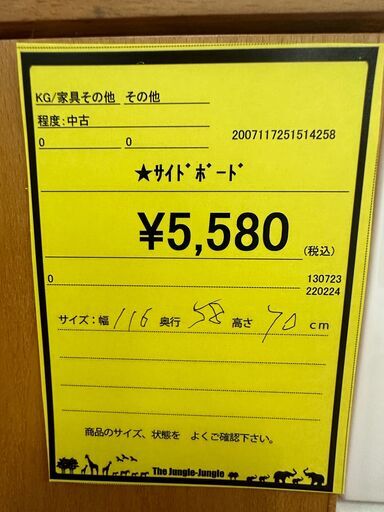 KG/家具その他 その他
程度:中古
0 0 2007117251514258
★ｻｲﾄﾞﾎﾞｰﾄﾞ
¥5,580
(税込)
0 130723
220224
サイズ:幅 116 奥行 58 高さ 70 cm
商品のサイズ、状態を よくご確認下さい。
The Jungle-Jungle